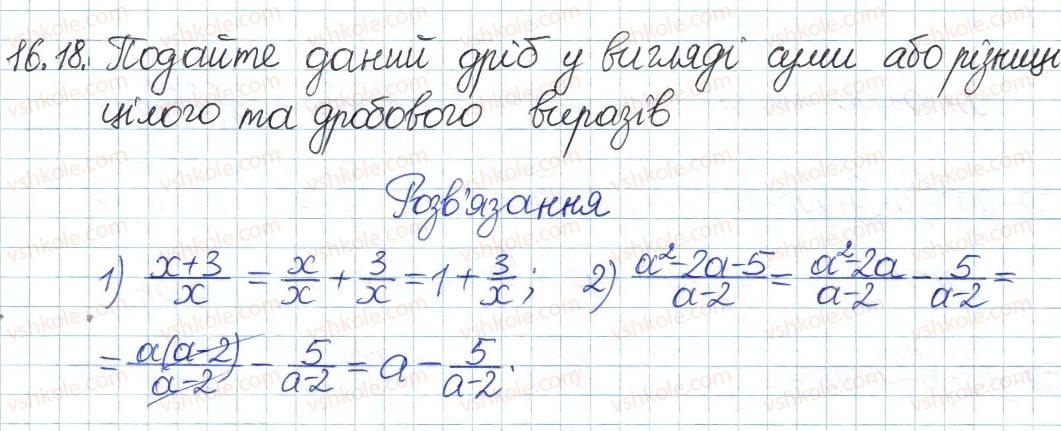 16.18. Подайте даний дріб у вигляді суми або різниці
цілого та дробового виразів
Розв'язання
1) \frac{x+3}{x} = \frac{x}{x} + \frac{3}{x} = 1 + \frac{3}{x}; 2) \frac{a^2-2a-5}{a-2} = \frac{a^2-2a}{a-2} - \frac{5}{a-2} =
= \frac{a(a-2)}{a-2} - \frac{5}{a-2} = a - \frac{5}{a-2}.